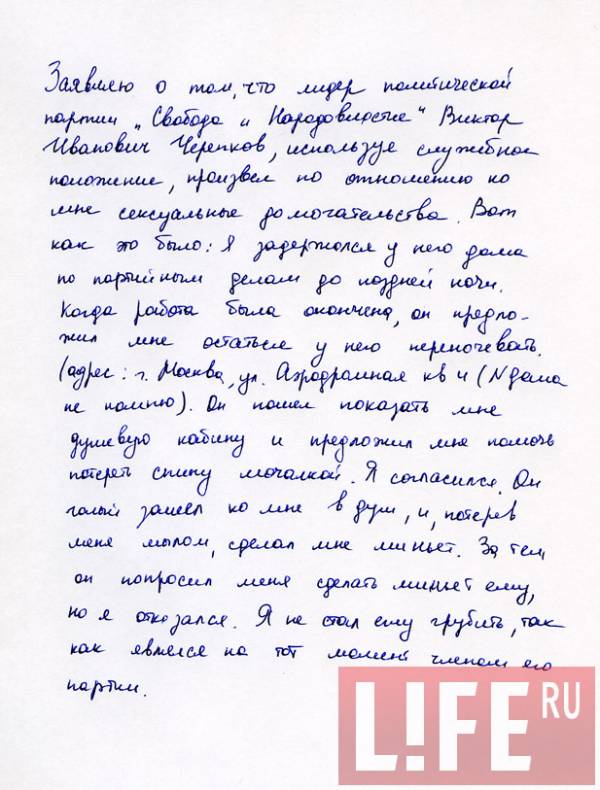 Заявляю о том, что лидер политической
партии „Свобода и Народовластие" Виктор
Иванович Черепков, используя служебное
положение, произвел по отношению ко
мне сексуальные домогательства. Вот
как это было: Я задержался у него дома
по партийным делам до поздней ночи.
Когда работа была окончена, он предло-
жил мне остаться у него переночевать.
(адрес: г. Москва, ул. Аэродромная кв 4 (N дома
не помню). Он пошел показать мне
душевую кабину и предложил мне помочь
потереть спину мочалкой. Я согласился. Он
голый зашел ко мне в душ, и, потерев
меня мылом, сделал мне миньет. За тем
он попросил меня сделать миньет ему,
но я отказался. Я не стал ему грубить, так
как являлся на тот момент членом его
партии.
L!FE RU